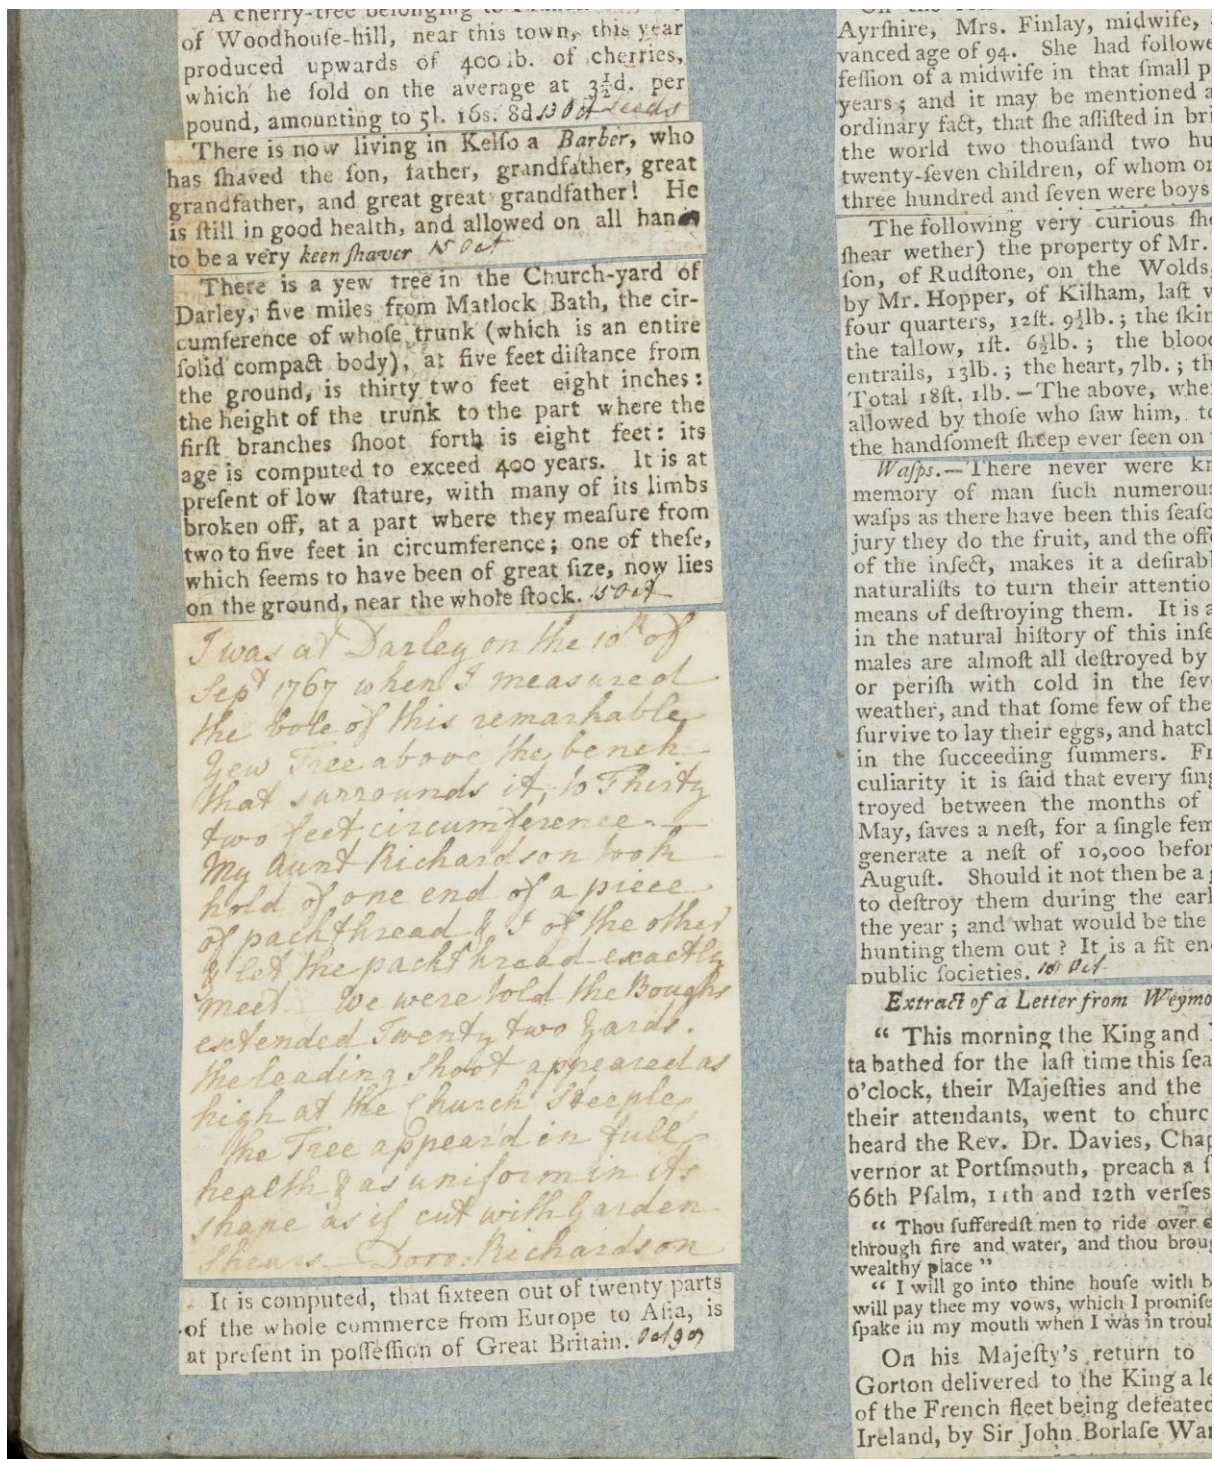 A cherry-tree belonging to
of Woodhouſe-hill, near this town, this year
produced upwards of 400 lb. of cherries,
which he ſold on the average at 3½d. per
pound, amounting to 5l. 16s. 8d. 13 Oct Leeds
There is now living in Kelſo a Barber, who
has ſhaved the ſon, father, grandfather, great
grandfather, and great great grandfather! He
is ſtill in good health, and allowed on all hands
to be a very keen ſhaver 15 Oct
There is a yew tree in the Church-yard of
Darley, five miles from Matlock Bath, the cir-
cumference of whoſe trunk (which is an entire
ſolid compact body), at five feet diſtance from
the ground, is thirty two feet eight inches:
the height of the trunk to the part where the
firſt branches ſhoot forth is eight feet: its
age is computed to exceed 400 years. It is at
preſent of low ſtature, with many of its limbs
broken off, at a part where they meaſure from
two to five feet in circumference; one of theſe,
which ſeems to have been of great ſize, now lies
on the ground, near the whole ſtock. 15 Oct
I was at Darley on the 10th of
Sept 1767 when I measured
the bole of this remarkable
Yew Tree above the bench
that surrounds it, to Thirty
two feet circumference.—
My Aunt Richardson took
hold of one end of a piece
of packthread & I of the other
& let the packthread exactly
meet — We were told the Boughs
extended Twenty two Yards.
the leading Shoot appeared as
high at the Church Steeple,
the Tree appear'd in full
health & as uniform in its
shape as if cut with Garden
Shears — Doro: Richardson
It is computed, that ſixteen out of twenty parts
of the whole commerce from Europe to Aſia, is
at preſent in poſſeſſion of Great Britain.
Ayrſhire, Mrs. Finlay, midwife,
vanced age of 94. She had followe
feſſion of a midwife in that ſmall p
years; and it may be mentioned a
ordinary fact, that ſhe aſſiſted in bri
the world two thouſand two hu
twenty-ſeven children, of whom on
three hundred and ſeven were boys
The following very curious ſhe
ſhear wether) the property of Mr.
ſon, of Rudſtone, on the Wolds,
by Mr. Hopper, of Kilham, laſt w
four quarters, 12ſt. 9½lb.; the ſkin
the tallow, 1ſt. 6½lb.; the blood
entrails, 13lb.; the heart, 7lb.; th
Total 18ſt. 1lb.—The above, whe
allowed by thoſe who ſaw him, to
the handſomeſt ſheep ever ſeen on
Waſps.—There never were kn
memory of man ſuch numerous
waſps as there have been this ſeaſo
jury they do the fruit, and the offe
of the inſect, makes it a deſirabl
naturaliſts to turn their attentio
means of deſtroying them. It is a
in the natural hiſtory of this inſe
males are almoſt all deſtroyed by
or periſh with cold in the ſeve
weather, and that ſome few of the
ſurvive to lay their eggs, and hatch
in the ſucceeding ſummers. Fr
culiarity it is ſaid that every ſing
troyed between the months of
May, ſaves a neſt, for a ſingle fem
generate a neſt of 10,000 befor
Auguſt. Should it not then be a g
to deſtroy them during the earl
the year; and what would be the
hunting them out? It is a fit en
public ſocieties. 18 Oct
Extract of a Letter from Weymo
“ This morning the King and
ta bathed for the laſt time this ſea
o'clock, their Majeſties and the
their attendants, went to churc
heard the Rev. Dr. Davies, Chap
vernor at Portſmouth, preach a ſ
66th Pſalm, 11th and 12th verſes
“ Thou ſufferedſt men to ride over
through fire and water, and thou broug
wealthy place ”
“ I will go into thine houſe with b
will pay thee my vows, which I promiſe
ſpake in my mouth when I was in troub
On his Majeſty's return to
Gorton delivered to the King a le
of the French fleet being defeated
Ireland, by Sir John Borlaſe War